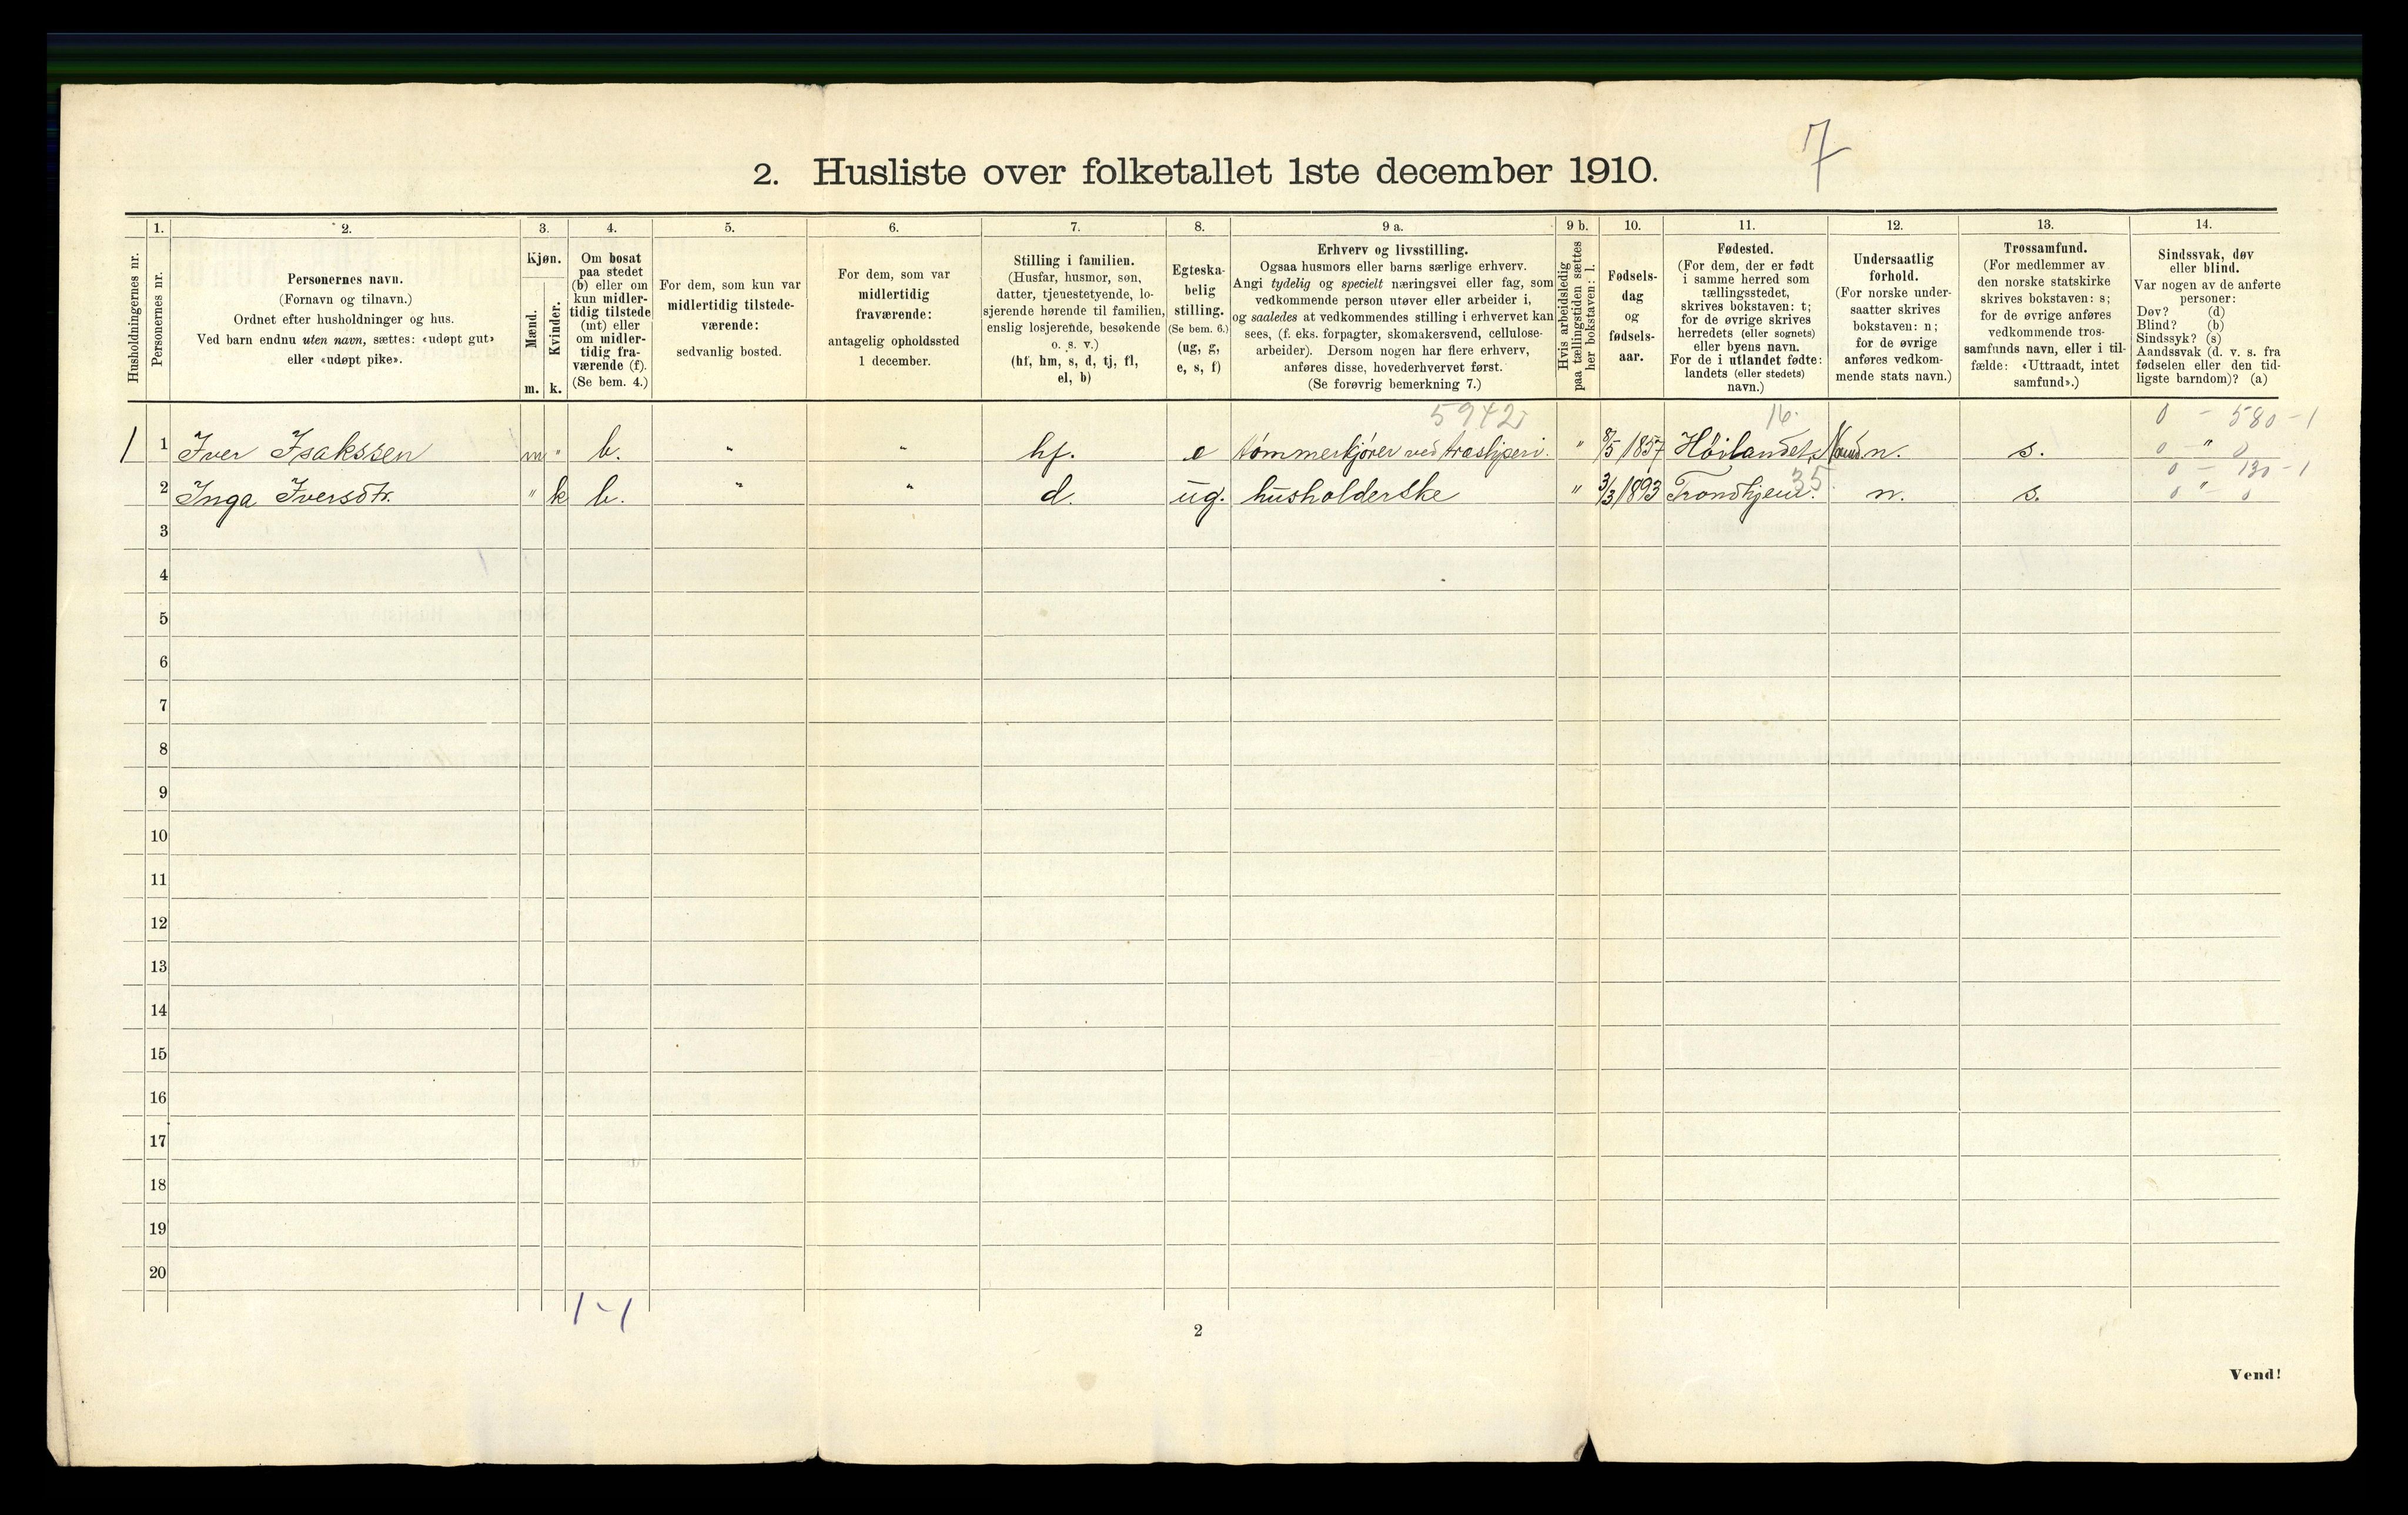 7
2. Husliste over folketallet 1ste december 1910.
Husholdningernes nr.
1.
Personernes nr.
2.
Personernes navn.
(Fornavn og tilnavn.)
Ordnet efter husholdninger og hus.
Ved barn endnu uten navn, sættes: «udøpt gut»
eller «udøpt pike».
3.
Kjøn.
Mænd.
Kvinder.
m. k.
4.
Om bosat
paa stedet
(b) eller om
kun midler-
tidig tilstede
(mt) eller
om midler-
tidig fra-
værende (f).
(Se bem. 4.)
5.
For dem, som kun var
midlertidig tilstede-
værende:
sedvanlig bosted.
6.
For dem, som var
midlertidig
fraværende:
antagelig opholdssted
1 december.
7.
Stilling i familien.
(Husfar, husmor, søn,
datter, tjenestetyende, lo-
sjerende hørende til familien,
enslig losjerende, besøkende
o. s. v.)
(hf, hm, s, d, tj, fl,
el, b)
8.
Egteska-
belig
stilling.
(Se bem. 6.)
(ug, g,
e, s, f)
9 a.
Erhverv og livsstilling.
Ogsaa husmors eller barns særlige erhverv.
Angi tydelig og specielt næringsvei eller fag, som
vedkommende person utøver eller arbeider i,
og saaledes at vedkommendes stilling i erhvervet kan
sees, (f. eks. forpagter, skomakersvend, cellulose-
arbeider). Dersom nogen har flere erhverv,
anføres disse, hovederhvervet først.
(Se forøvrig bemerkning 7.)
9 b.
Hvis arbeidsledig
paa tællingstiden sættes
her bokstaven: l.
10.
Fødsels-
dag
og
fødsels-
aar.
11.
Fødested.
(For dem, der er født
i samme herred som
tællingsstedet,
skrives bokstaven: t;
for de øvrige skrives
herredets (eller sognets)
eller byens navn.
For de i utlandet fødte:
landets (eller stedets)
navn.)
12.
Undersaatlig
forhold.
(For norske under-
saatter skrives
bokstaven: n;
for de øvrige
anføres vedkom-
mende stats navn.)
13.
Trossamfund.
(For medlemmer av
den norske statskirke
skrives bokstaven: s;
for de øvrige anføres
vedkommende tros-
samfunds navn, eller i til-
fælde: «Uttraadt, intet
samfund».)
14.
Sindssvak, døv
eller blind.
Var nogen av de anførte
personer:
Døv? (d)
Blind? (b)
Sindssyk? (s)
Aandssvak (d. v. s. fra
fødselen eller den tid-
ligste barndom)? (a)
16. 0 - 580 - 1
1 1 Iver Isakssen m " b. " " hf. e tømmerkjører ved " 8/5 1857 Høilandet, n. s. 0 - " 0
35. 0 - 130 - 1
2 Inga Iversdtr. " k b. " " d. ug. husholderske " 3/3 1893 Trondhjem. n. s. 0 " - 0
3
4
5
6
7
8
9
10
11
12
13
14
15
16
17
18
19
20
1 - 1
2
Vend!